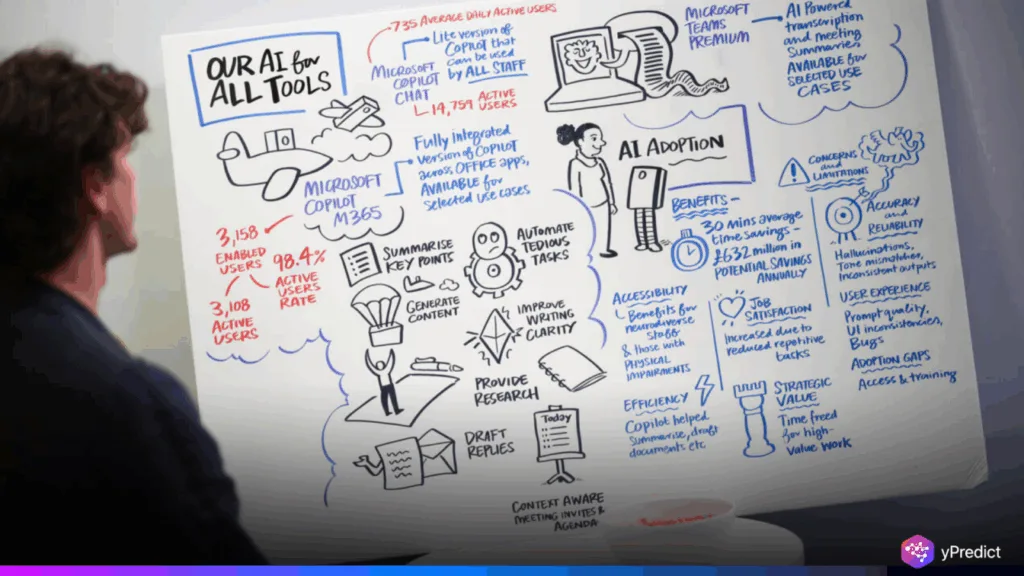 OUR AI for
ALL TOOLS
735 AVERAGE DAILY ACTIVE USERS
MICROSOFT
COPILOT
CHAT
Lite version of
COPILOT that
can be used
by ALL STAFF
14,759 ACTIVE
USERS
MICROSOFT
COPILOT
M365
Fully integrated
version of COPILOT
across OFFICE apps,
AVAILABLE for
selected use cases
3,158
ENABLED
USERS
98.4%
ACTIVE
USERS
RATE
3,108
ACTIVE
USERS
SUMMARISE
KEY POINTS
AUTOMATE
TEDIOUS
TASKS
GENERATE
CONTENT
IMPROVE
WRITING
CLARITY
PROVIDE
RESEARCH
DRAFT
REPLIES
Today
CONTEXT AWARE
MEETING INVITES &
AGENDA
MICROSOFT
TEAMS
PREMIUM
AI Powered
transcription
and meeting
Summaries
AVAILABLE for
SELECTED USE
CASES
AI ADOPTION
BENEFITS –
30 mins average
time savings –
£632 million in
POTENTIAL SAVINGS
ANNUALLY
ACCESSIBILITY
Benefits for
neurodiverse
staff
& those with
PHYSICAL
IMPAIRMENTS
JOB
SATISFACTION
Increased due to
reduced repetitive
tasks
EFFICIENCY
Copilot helped
summarise, draft
documents etc
STRATEGIC
VALUE
Time freed
for high-
value work
CONCERNS
and
LIMITATIONS
ACCURACY
and
RELIABILITY
Hallucinations,
Tone mismatches,
Inconsistent outputs
USER EXPERIENCE
Prompt quality,
UI inconsistencies,
Bugs
ADOPTION GAPS
Access & training
yPredict